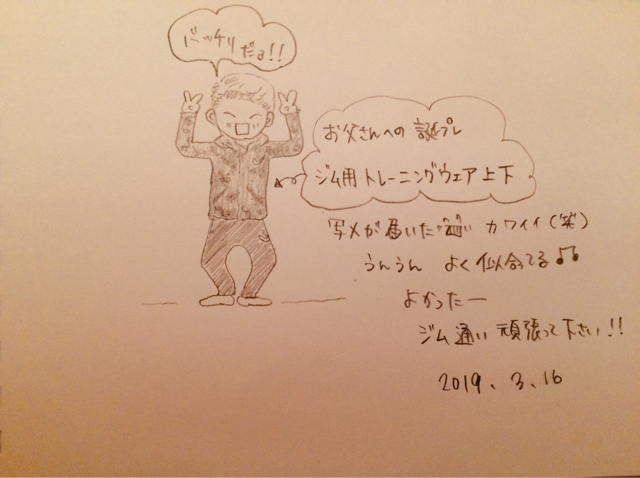 バッチリ
だョ!!
お父さんへの 誕プレ
ジム用トレーニングウェア上下
写メが届いた カワイイ(笑)
うんうん よく似合ってる♫
よかったー
ジム通い 頑張って下さい!!
2019. 3. 16